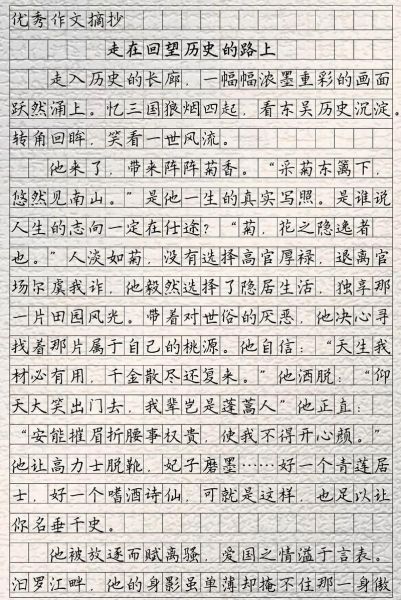 优秀作文摘抄
走在回望历史的路上
走入历史的长廊，一幅幅浓墨重彩的画面
跃然涌上。忆三国狼烟四起，看东吴历史沉淀。
转角回眸，笑看一世风流。
他来了，带来阵阵菊香。“采菊东篱下，
悠然见南山。”是他一生的真实写照。是谁说
人生的志向一定在仕途？“菊，花之隐逸者
也。”人淡如菊，没有选择高官厚禄，退离官
场尔虞我诈，他毅然选择了隐居生活，独享那
一片田园风光。带着对世俗的厌恶，他决心寻
找着那片属于自己的桃源。他自信：“天生我
材必有用，千金散尽还复来。”他洒脱：“仰
天大笑出门去，我辈岂是蓬蒿人”他正直：
“安能摧眉折腰事权贵，使我不得开心颜。”
他让高力士脱靴，妃子磨墨……好一个青莲居
士，好一个嗜酒诗仙，可就是这样，也足以让
你名垂千史。
他被放逐而赋离骚，爱国之情溢于言表。
汨罗江畔，他的身影虽单薄却掩不住那一身傲